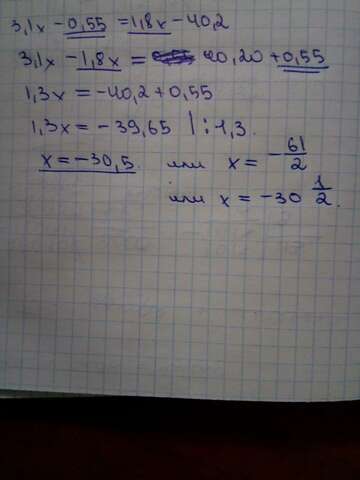 3,1x - 0,55 = 1,8x - 40,2
3,1x - 1,8x = 40,20 + 0,55
1,3x = -40,2 + 0,55
1,3x = -39,65 | : 1,3.
x = -30,5 или x = -61/2
или x = -30 1/2.